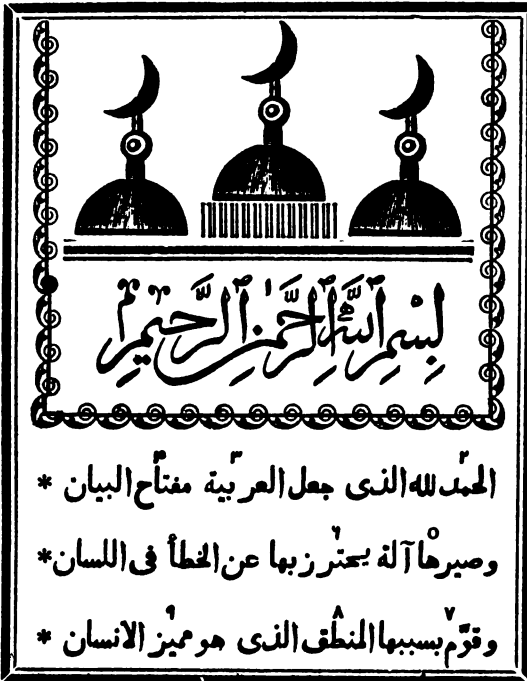 بِسْمِ اللهِ الرَّحْمنِ الرَّحيمِ
الحمد٢ لله الذى جعل العربية٣ مفتاح٤ البيان *
وصيرها٥ آلة يحترز٦ بها عن الخطأ فى اللسان *
وقوّم٧ بسببها المنطق٨ الذى هو مميز٩ الانسان *